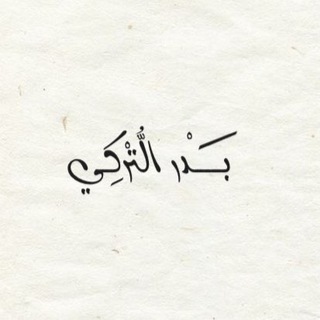 بَدْر التُّرْكِي